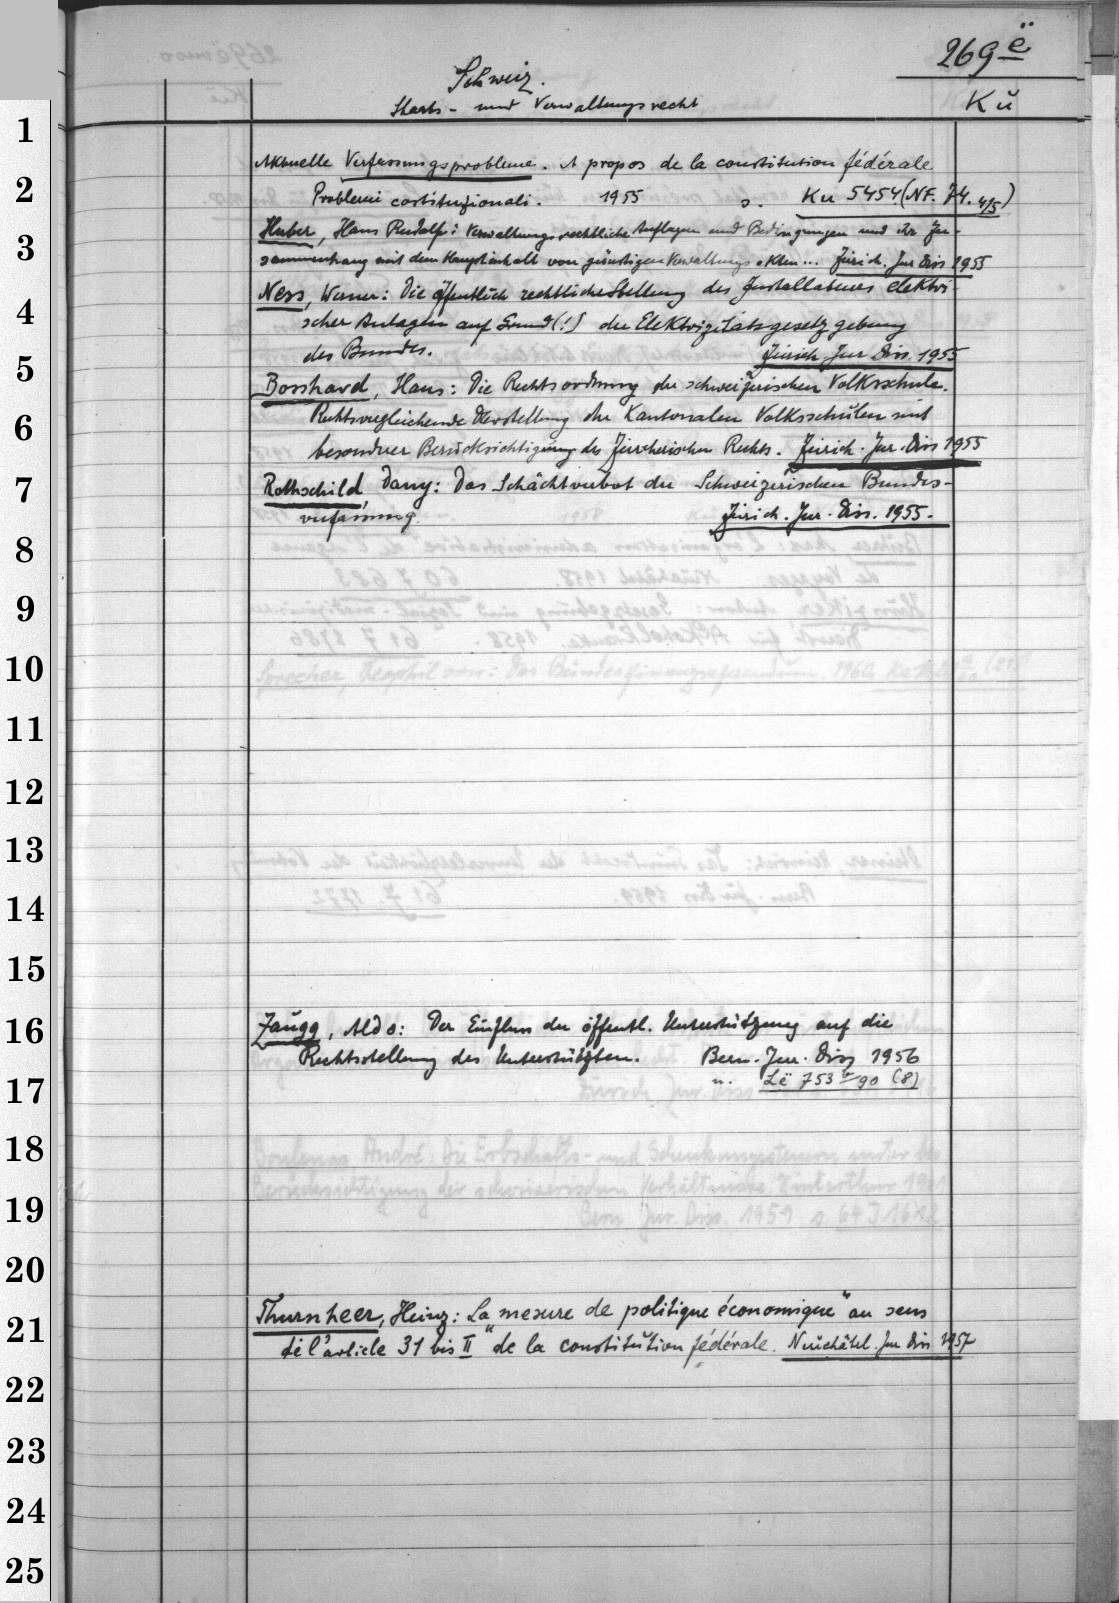 269ë
Schweiz.
Staats- und Verwaltungsrecht
Kü
Aktuelle Verfassungsprobleme. A propos de la constitution fédérale
Problemi costituzionali. 1955 s. Ku 5454 (NF. 74. 4/5)
Huber, Hans Rudolf: Verwaltungsrechtliche Auflagen und Bedingungen und ihr Zu-
sammenhang mit dem Hauptinhalt von günstigen Verwaltungsakten... Zürich. Jur Diss 1955
Ness, Werner: Die öffentlich rechtliche Stellung des Installateurs elektri-
scher Anlagen auf Grund (!) der Elektrizitätsgesetzgebung
des Bundes. Zürich. Jur. Diss. 1955
Bosshard, Hans: Die Rechtsordnung der schweizerischen Volksschule.
Rechtsvergleichende Darstellung der Kantonalen Volksschulen mit
besondrer Berücksichtigung des Zürcherischen Rechts. Zürich. Jur. Diss 1955
Rothschild, Dany: Das Schächtverbot der Schweizerischen Bundes-
verfassung. Zürich. Jur. Diss. 1955.
Zaugg, Aldo: Der Einfluss der öffentl. Unterstützung auf die
Rechtsstellung des Unterstützten. Bern. Jur. Diss 1956
u. Lë 753 b/90 (8)
Thurnheer, Heinz: La "mesure de politique économique" au sens
de l'article 31 bis II de la constitution fédérale. Neuchâtel. Jur Diss 1957
1
2
3
4
5
6
7
8
9
10
11
12
13
14
15
16
17
18
19
20
21
22
23
24
25